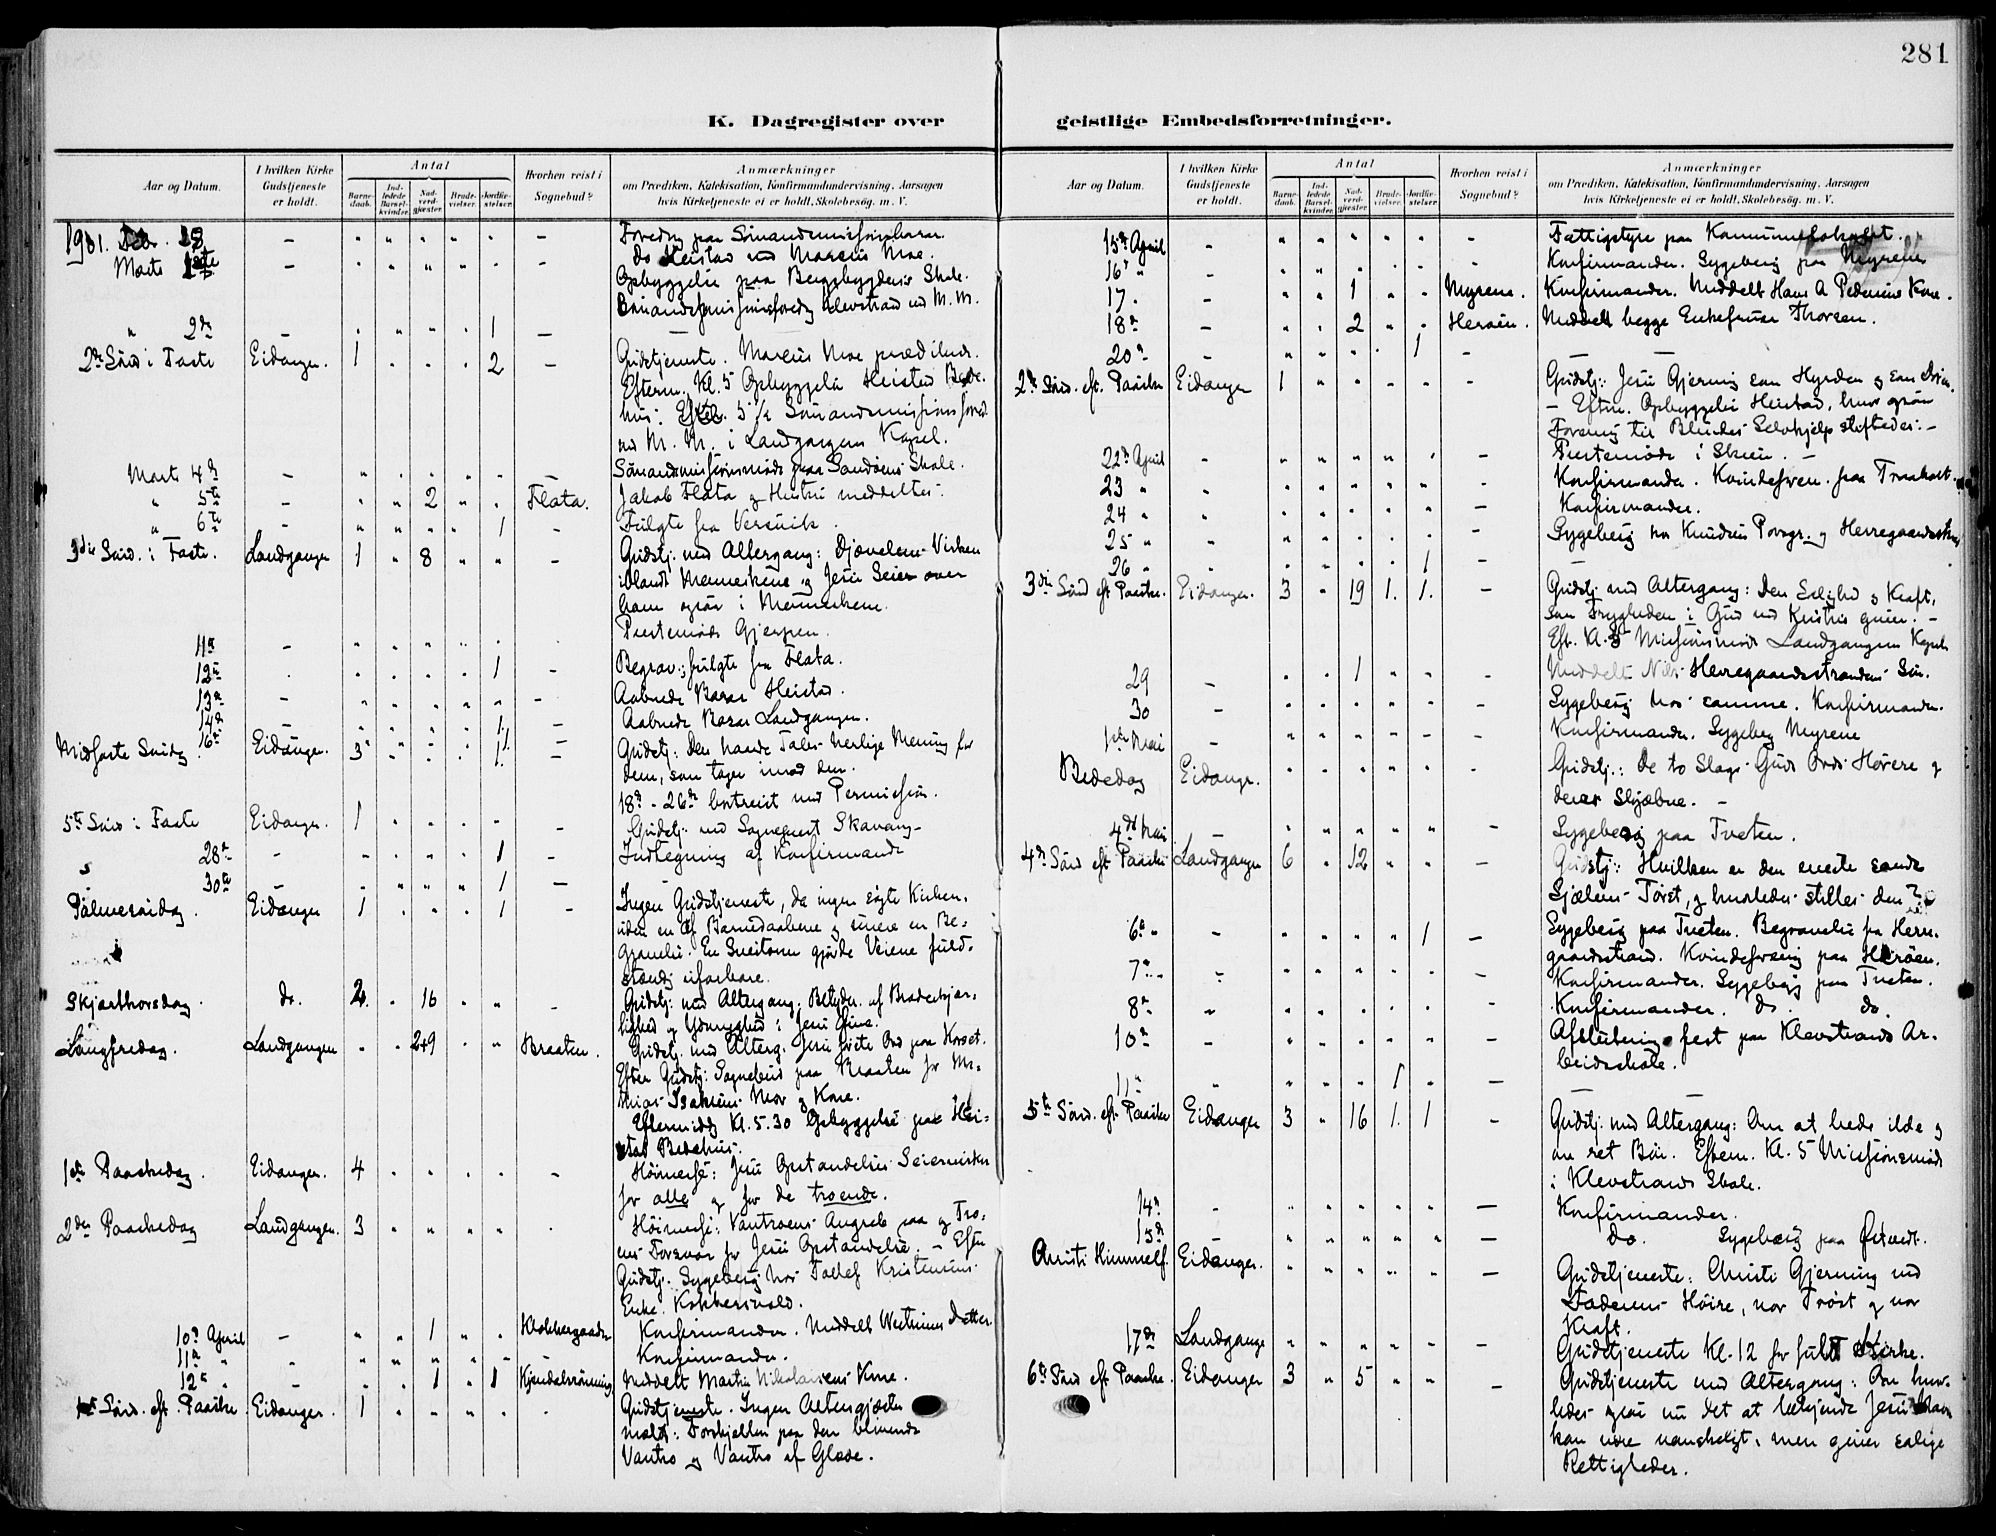 281
K. Dagregister over geistlige Embedsforretninger.
Aar og Datum.
I hvilken Kirke Gudstjeneste er holdt.
Antal
Barne-daab.
Ind-ledede Barsel-kvinder.
Nad-verd-gjæster.
Brude-vielser.
Jordfæ-stelser.
Hvorhen reist i Sognebud?
Anmærkninger
om Prædiken, Katekisation, Konfirmandundervisning, Aarsagen
hvis Kirketjeneste ei er holdt, Skolebesøg. m. V.
" 2den - " " " " 1 -
2den Sønd i Faste Eidanger. 1 " " " 2 - Gudstjeneste. Marcus Moe prædikede.
Efterm. Kl. 5 Opbyggelse Heistad Bede-
hus:
M. M. i Landgangens Kapel.
Marts 4de - Sømandsmissionsmøde paa Sandøens Skole.
" 5te - 2 Flata. Jakob Flata og Hustru meddeltes.
" 6te - 1 - Fulgte fra Versvik.
3die Sønd. i Faste. Landgangen 1 " 8 " " - Gudstj. med Altergang: Djævelens Virken
iblandt Menneskene og Jesu Seier over
ham ogsaa i Menneskene.
11te - Præstemøde Gjerpen.
12te 1 - Begrav.; fulgte fra Flata.
13de - Aabnede Basar Heistad.
14de - Aabnede Basar Landgangen.
16de
Midfaste Søndag. Eidanger. 3 Gudstj: Den haarde Tales herlige Mening for
dem, som tager imod den.
18de - 26de bortreist med Permission.
5te Sønd i Faste Eidanger. 1 - Gudstj. med Sognepræst Skavang
28de - 1 - Jordfæstning af Konfirmande
30te - 1 -
Palmesøndag. Eidanger 1 1 - Ingen Gudstjeneste, da ingen søgte Kirken,
uden en af Barnedaabene og senere en Be-
gravelse. En Snestorm gjorde Veiene fuld-
stændig ufarbare.
Skjærthorsdag. do. 2. " 16 " " - Gudstj. med Altergang. Betydn. af Broderkjær-
lighed og Ydmyghed i Jesu Øine.
Langfredag. Landgangen " " 2+9 " " Braaten. Gudstj. med Alterg. Jesu sidste Ord paa Korset.
Efter Gudstj: Sognebud paa Braaten for Ma-
thias Isaksens Mor og Kone.
Eftermiddg Kl. 5.30 Opbyggelse paa Hei-
stad Bedehus.
1ste Paaskedag. Eidanger. 4 - Høimesse: Jesu Opstandelses Seiervirken
for alle og for de troende.
2den Paaskedag Landgangen. 3 Høimesse: Vantroens Angreb paa og Tro-
ens Forsvar for Jesu Opstandelse. - Efter
Gudstj. Sygebesøg hos Tollef Kristensens
Enke.
10de April - " " 1 " " Klokkergaarden Konfirmander. Meddelt Datter.
11te " - Konfirmander.
12te " - " " 1 " 1 Kjendalsrønning Meddelt Martin Nikolaisens Kone.
1ste Sønd. eft. Paaske Eidanger. 1 Gudstjeneste. Ingen Altergjæster
meldt: Forskjellen paa den blivende
Vantro og Vantro af Glæde.
15de April - Fattigstyre paa Kommunelokalet.
16de " - Konfirmander. Sygebesøg paa Myrene
17. - " " 1 " " Myrene. Konfirmander. Meddelt Hans A Pedersens Kone.
18de - " " 2 " " Herøen. Meddelt begge Enkefruer Thorsen.
20de - 1 -
2den Sønd. eft. Paaske Eidanger 1 - Gudstj: Jesu Gjerning som Hyrden og som Døren.
- Efterm. Opbyggelse Heistad, hvor ogsaa
Forening til Blindes Selvhjælp stiftedes. -
22de April - Præstemøde i Skien. -
23 " - Konfirmander. Kvindeforen. paa Traaholt.
24 " - Konfirmander.
25 " - Sygebesøg hos Knudsens Porsgr. og Herregaardsstrand
26 " 1 -
3die Sønd eft Paaske. Eidanger. 3 " 19 1. 1. - Gudstj. med Altergang: Den Salighed og Kraft,
som Trygheden i Gud ved Kristus giver. -
Eft. Kl. 5 Missionsmøde Landgangens Kapel
29 - " " 1 " " - Meddelt Nils Herregaardsstrandens Søn.
30 - Sygebesøg hos samme. Konfirmander.
1ste Mai - Konfirmander. Sygebesøg Myrene
Bededag Eidanger. Gudstj.: De to Slags Guds Ords Hørere og
deres Skjæbne. -
4de Mai - Sygebesøg paa Tveten.
4de Sønd eft Paaske Landgangen 6 " 12 " " - Gudstj: Hvilken er den eneste sande
Sjælens Tørst, og hvorledes stilles den?
6te " - 1 - Sygebesøg paa Tveten. Begravelse fra Herre-
gaardsstrand. Kvindeforening paa Herøen.
7de " - Konfirmander. Sygebesøg paa Tveten.
8de " - Konfirmander. do. do.
10de - Afslutningsfest paa Klevstrands Ar-
beidsskole.
11te " 1 " -
5te Sønd. eft. Paaske Eidanger 3 " 16 1. 1 - Gudstj. med Altergang: Om at bede ilde og
om ret Bøn. Efterm. Kl. 5 Missionsmøde
i Klevstrands Skole.
14de - Konfirmander.
15de - do. Sygebesøg paa Østvedt.
Christi Himmelf. Eidanger. - Gudstjeneste: Christi Gjerning ved
Faderens Høire, vor Trøst og vor
Kraft.
17de Landgangen Gudstjeneste Kl. 12 for fuld Kirke.
6te Sønd eft Paaske. Eidanger 3 " 5 " " - Gudstjeneste med Altergang: Om hvor-
ledes ogsaa nu det at bekjende Jesu Navn
kan være vanskeligt, men giver salige
Rettigheder.